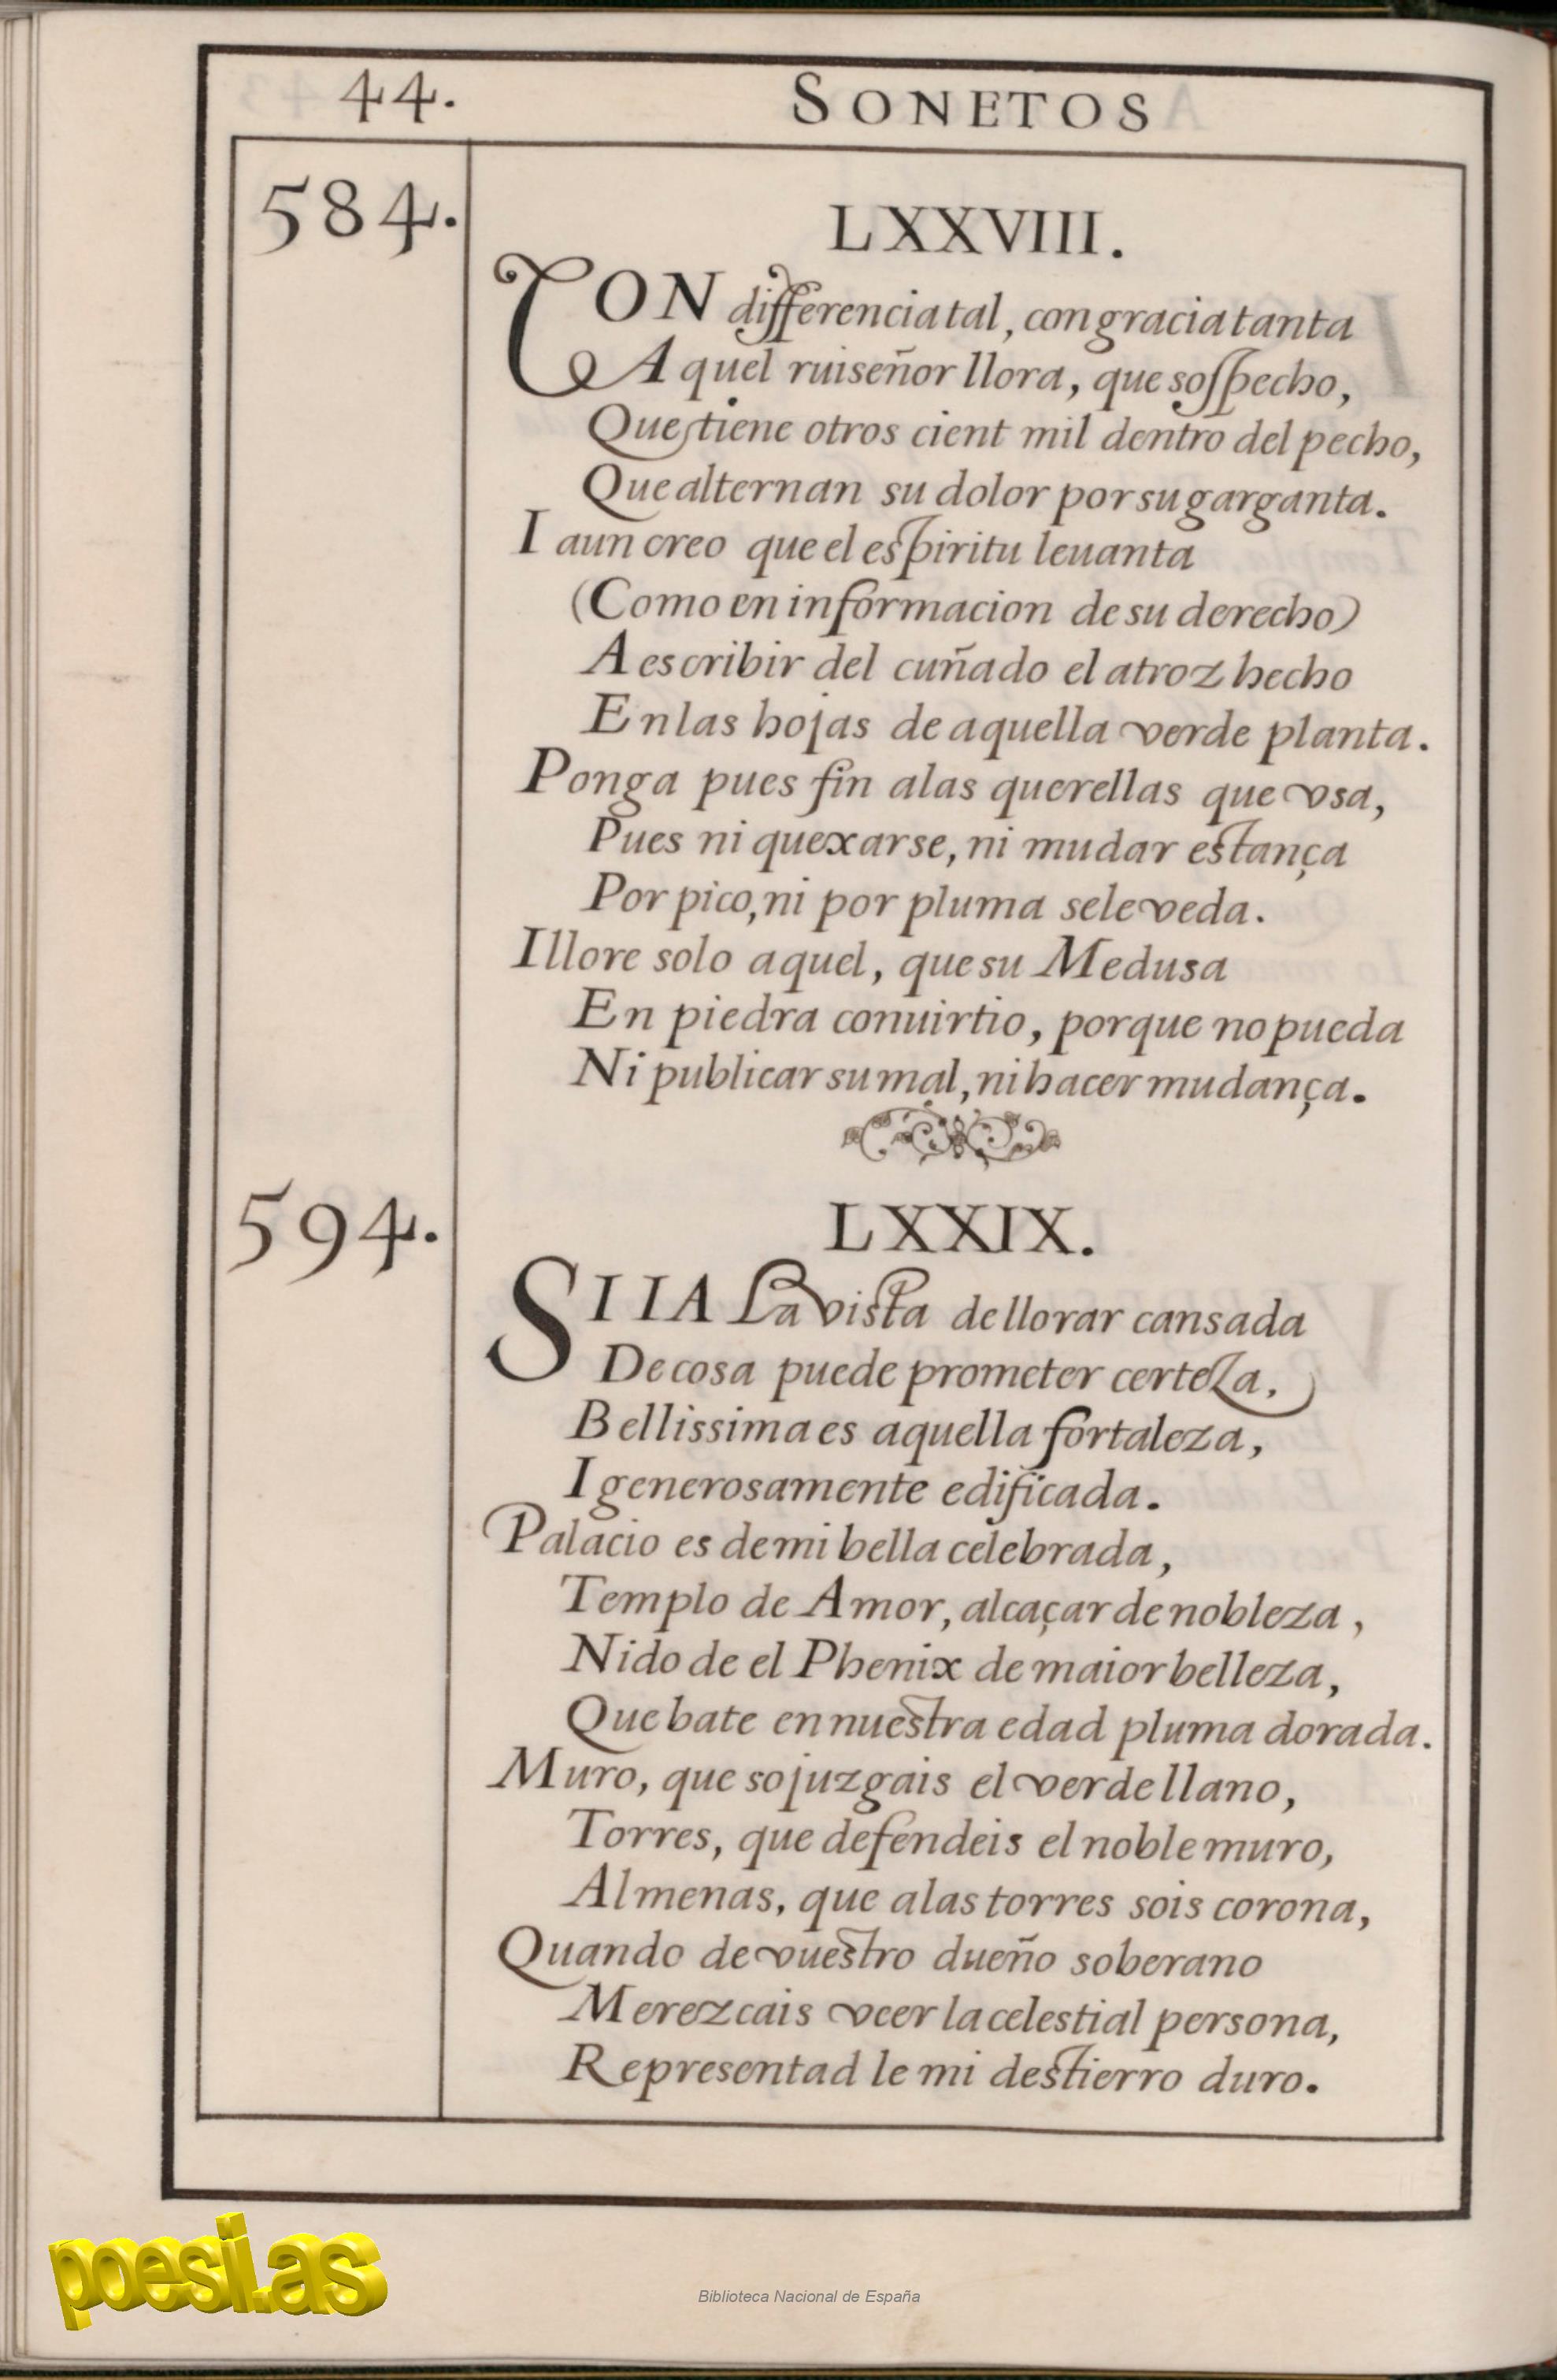 44. SONETOS
584.
LXXVIII.
CON differencia tal, con gracia tanta
Aquel ruiseñor llora, que sospecho,
Que tiene otros cient mil dentro del pecho,
Que alternan su dolor por su garganta.
I aun creo que el espiritu leuanta
(Como en informacion de su derecho)
A escribir del cuñado el atroz hecho
En las hojas de aquella verde planta.
Ponga pues fin a las querellas que vsa,
Pues ni quexarse, ni mudar estança
Por pico, ni por pluma se le veda.
I llore solo aquel, que su Medusa
En piedra conuirtio, porque no pueda
Ni publicar su mal, ni hacer mudança.
594.
LXXIX.
SI IA La vista de llorar cansada
De cosa puede prometer certeza,
Bellissima es aquella fortaleza,
I generosamente edificada.
Palacio es de mi bella celebrada,
Templo de Amor, alcaçar de nobleza,
Nido de el Phenix de maior belleza,
Que bate en nuestra edad pluma dorada.
Muro, que sojuzgais el verde llano,
Torres, que defendeis el noble muro,
Almenas, que a las torres sois corona,
Quando de vuestro dueño soberano
Merezcais veer la celestial persona,
Representad le mi destierro duro.
poesi.as
Biblioteca Nacional de España